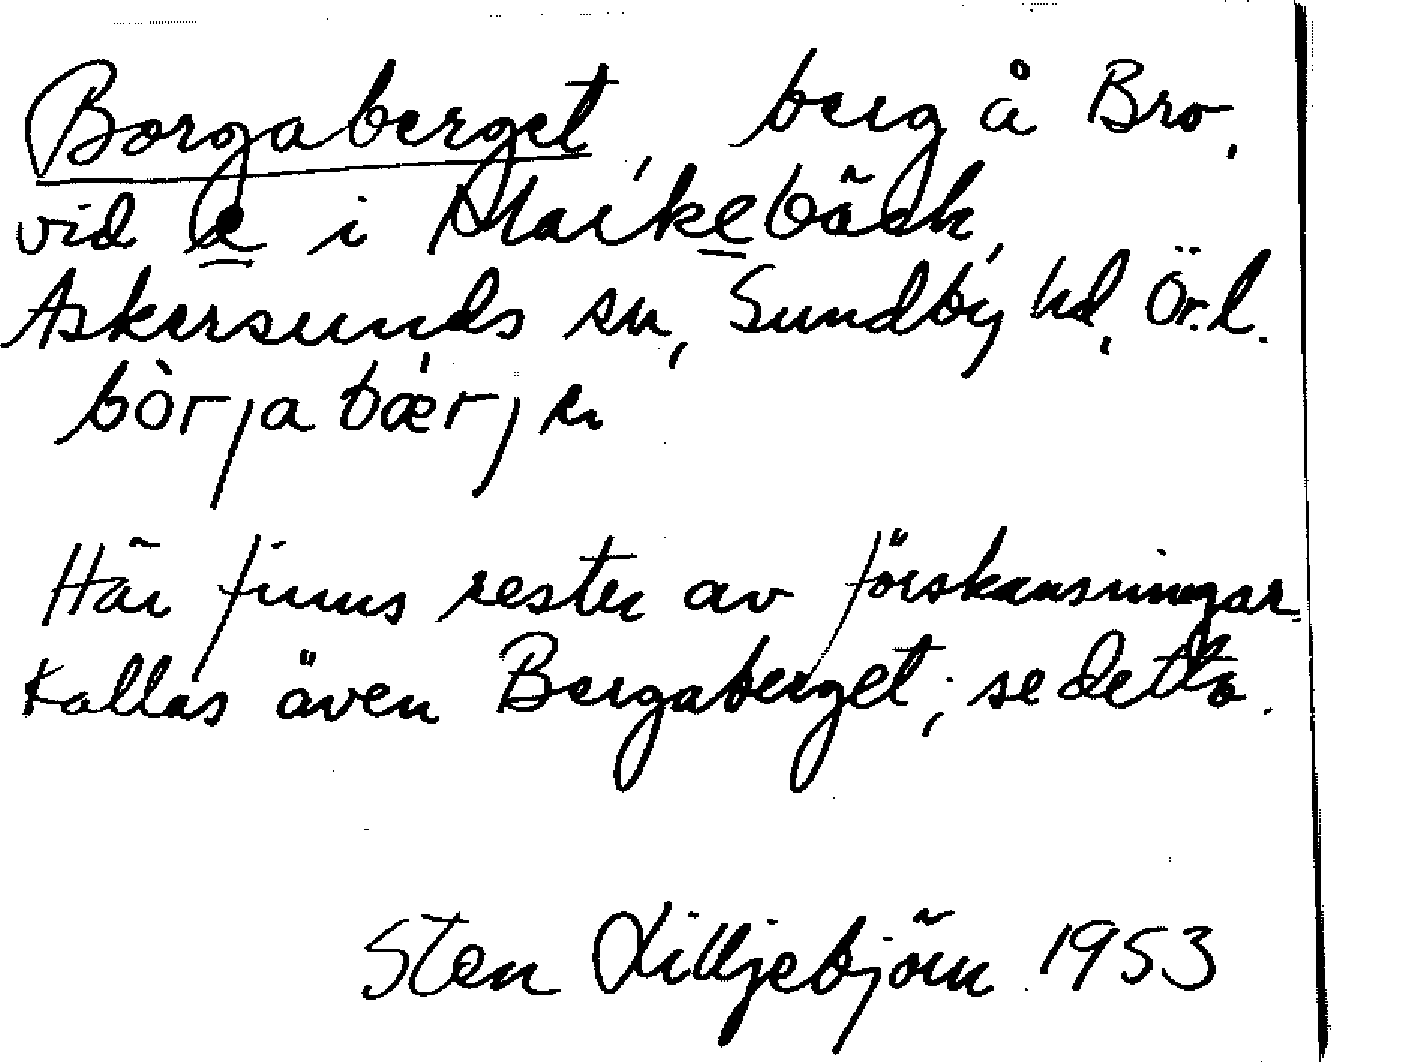 Borgaberget, berg å Bro,
vid e i Markebäck,
Askersunds sn, Sundby hd, Ör.l.
bòrjabǽrjen
Här finns rester av förskansningar
Kallas även Bergaberget; se detta.
Sten Lilljebjörn 1953